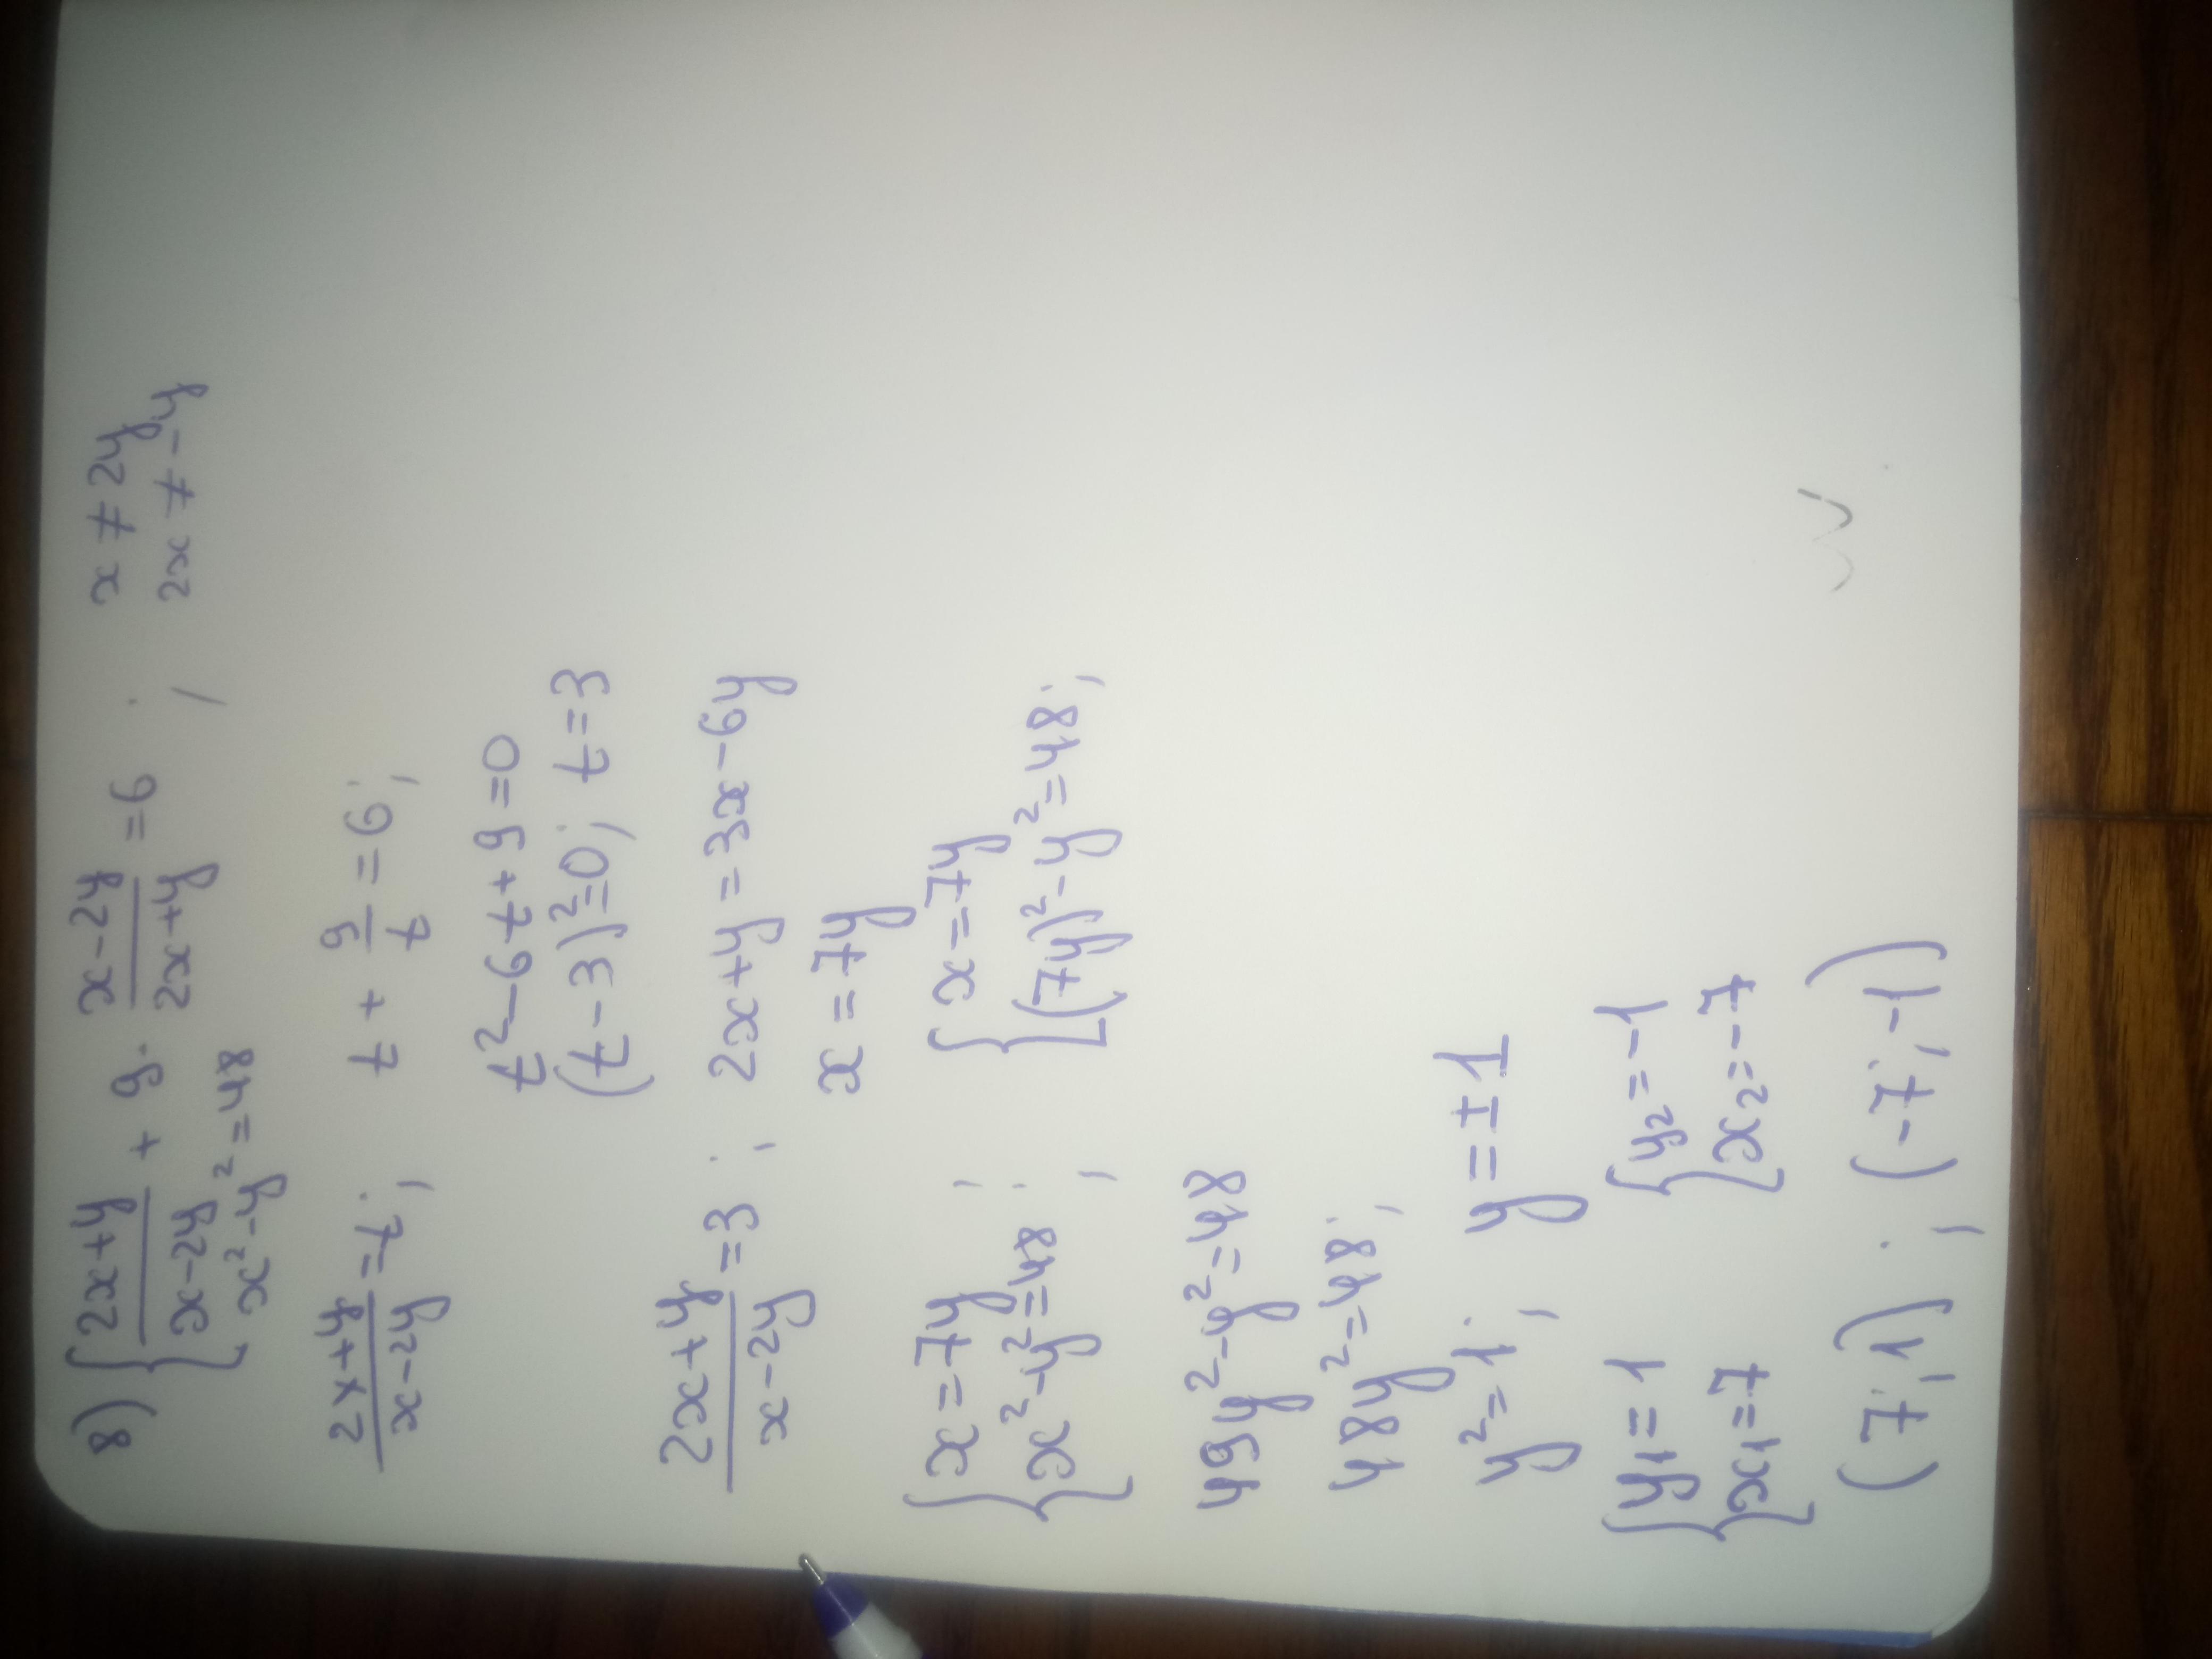 8) { (2x+y)/(x-2y) + 9 · (x-2y)/(2x+y) = 6 ; x ≠ 2y
x² - y² = 48 2x ≠ -y
(2x+y)/(x-2y) = t ; t + 9/t = 6 ;
t² - 6t + 9 = 0
(t - 3)² = 0 ; t = 3
(2x+y)/(x-2y) = 3 ; 2x+y = 3x - 6y
x = 7y
{ x = 7y ; { x = 7y
x² - y² = 48 ; (7y)² - y² = 48 ;
49y² - y² = 48
48y² = 48 ;
y² = 1 ; y = ±1
{ y₁ = 1 { y₂ = -1
x₁ = 7 x₂ = -7
(7 ; 1) ; (-7 ; -1)